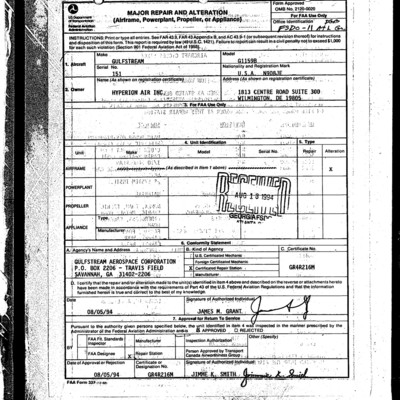 MAJOR REPAIR AND ALTERATION
(Airframe, Powerplant, Propeller, or Appliance)
Form Approved
OMB No. 2120-0020
For FAA Use Only
Office Identification
FSDO-11 ATL Ga
INSTRUCTIONS: Print or type all entries. See FAR 43.9, FAR 43 Appendix B, and AC 43.9-1 (or subsequent revision thereof) for instructions
and disposition of this form. This report is required by law (49 U.S.C. 1421). Failure to report can result in a civil penalty not to exceed $1,000
for each such violation (Section 901 Federal Aviation Act of 1958).
1. Aircraft
Make
GULFSTREAM
Model
G1159B
Serial No.
151
Nationality and Registration Mark
U.S.A. N908JE
2. Owner
Name (As shown on registration certificate)
HYPERION AIR INC.
Address (As shown on registration certificate)
1813 CENTRE ROAD SUITE 300
WILMINGTON, DE 19805
3. For FAA Use Only
4. Unit Identification
5. Type
Unit
Make
Model
Serial No.
Repair
Alteration
AIRFRAME
(As described in Item 1 above)
X
POWERPLANT
PROPELLER
APPLIANCE
Type
Manufacturer
RECEIVED
AUG 18 1994
GEORGIA FSDO
6. Conformity Statement
A. Agency's Name and Address
B. Kind of Agency
C. Certificate No.
GULFSTREAM AEROSPACE CORPORATION
P.O. BOX 2206 - TRAVIS FIELD
SAVANNAH, GA 31402-2206
U.S. Certificated Mechanic
Foreign Certificated Mechanic
X Certificated Repair Station
Manufacturer
GR4R216M
D. I certify that the repair and/or alteration made to the unit(s) identified in item 4 above and described on the reverse or attachments hereto
have been made in accordance with the requirements of Part 43 of the U.S. Federal Aviation Regulations and that the information
furnished herein is true and correct to the best of my knowledge.
Date
08/05/94
Signature of Authorized Individual
JAMES M. GRANT
7. Approval for Return To Service
Pursuant to the authority given persons specified below, the unit identified in item 4 was inspected in the manner prescribed by the
Administrator of the Federal Aviation Administration and is
APPROVED
REJECTED
BY
FAA Flt. Standards
Inspector
Manufacturer
Inspection Authorization
Other (Specify)
FAA Designee
X Repair Station
Person Approved by Transport
Canada Airworthiness Group
Date of Approval or Rejection
08/05/94
Certificate or
Designation No.
GR4R216M
Signature of Authorized Individual
JIMME K. SMITH
FAA Form 337